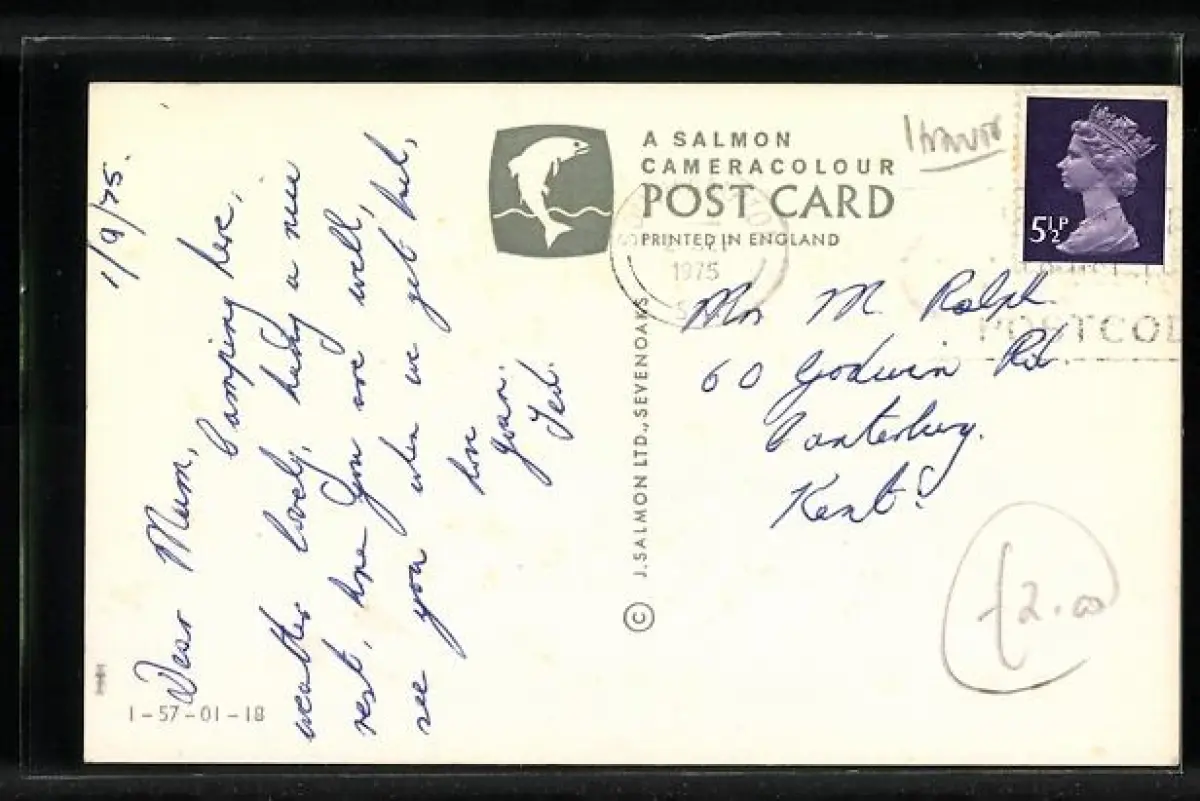 1/9/75.
Dear Mum,
Camping here,
weather lovely, having a nice
rest, hope you are well,
see you when we get back,
love
Joan.
Ted.
1-57-01-18
A SALMON
CAMERACOLOUR
POST CARD
PRINTED IN ENGLAND
1975
5½P
POSTCO
Mrs M. Ralph
60 Godwin Rd.
Canterbury.
Kent.
© J. SALMON LTD., SEVENOAKS
£2.00